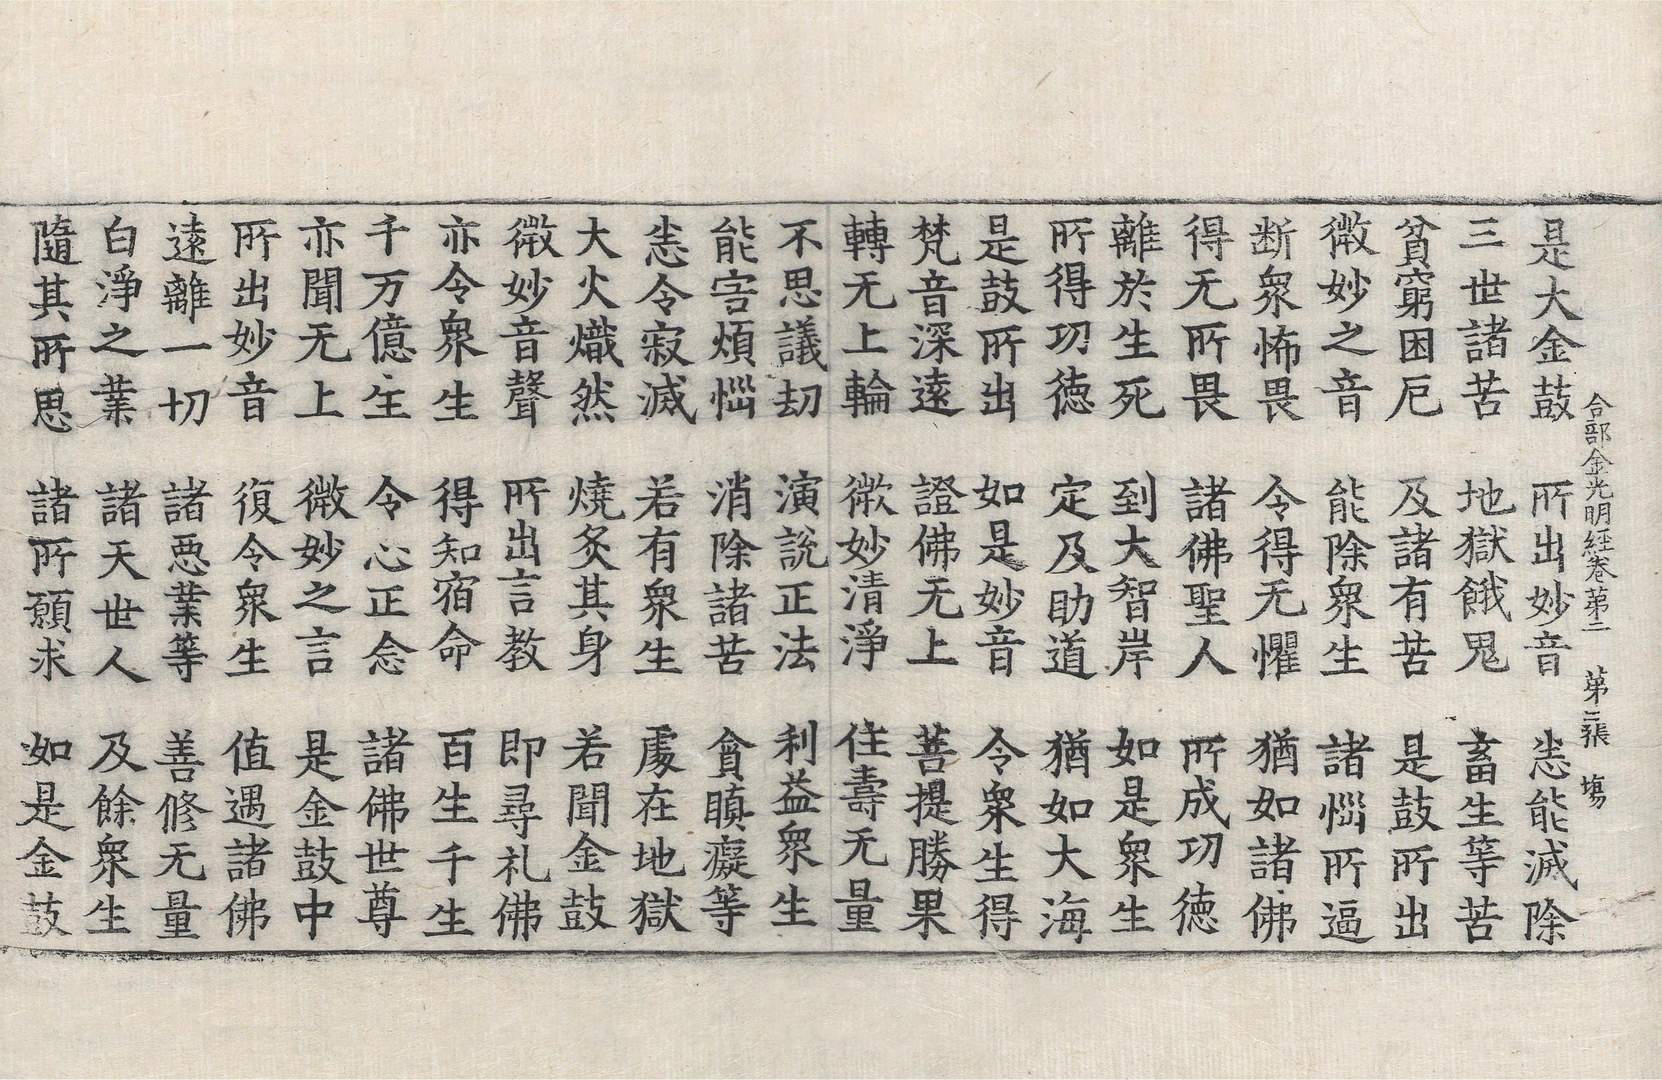 合部金光明經卷第二　第二張　場
是大金鼓　所出妙音　悉能滅除
三世諸苦　地獄餓鬼　畜生等苦
貧窮困厄　及諸有苦　是鼓所出
微妙之音　能除衆生　諸惱所逼
断衆怖畏　令得无懼　猶如諸佛
得无所畏　諸佛聖人　所成功德
離於生死　到大智岸　如是衆生
所得功德　定及助道　猶如大海
是鼓所出　如是妙音　令衆生得
梵音深遠　證佛无上　菩提勝果
轉无上輪　微妙清淨　住壽无量
不思議劫　演說正法　利益衆生
能害煩惱　消除諸苦　貪瞋癡等
悉令寂滅　若有衆生　處在地獄
大火熾然　燒炙其身　若聞金鼓
微妙音聲　所出言教　即尋礼佛
亦令衆生　得知宿命　百生千生
千万億生　令心正念　諸佛世尊
亦聞无上　微妙之言　是金鼓中
所出妙音　復令衆生　值遇諸佛
遠離一切　諸惡業等　善修无量
白淨之業　諸天世人　及餘衆生
隨其所思　諸所願求　如是金鼓